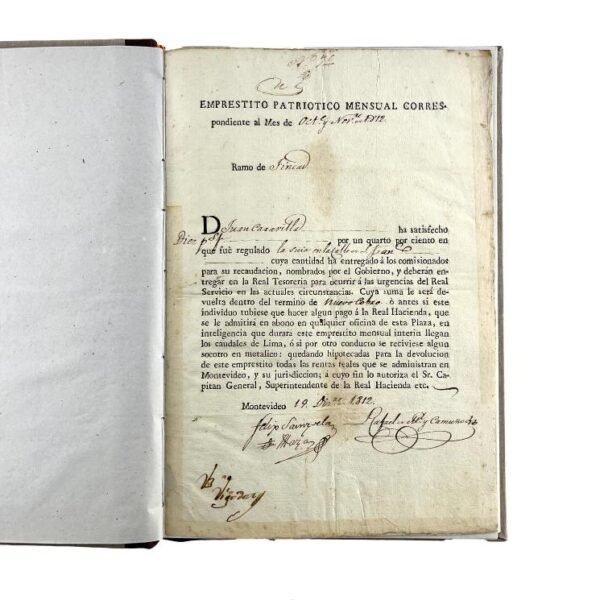 EMPRESTITO PATRIOTICO MENSUAL CORRES-
pondiente al Mes de Oct.e y Nov.e de 1812.
Ramo de Fincas
D Juan ha satisfecho
Diez p.s por un quarto por ciento en
que fuè regulado la suia en la calle de S.n Juan
cuya cantidad ha entregado á los comisionados
para su recaudacion, nombrados por el Gobierno, y deberán en-
tregar en la Real Tesoreria para ocurrir á las urgencias del Real
Servicio en las actuales circunstancias. Cuya suma le será de-
vuelta dentro del termino de nuevo Cobro ò antes si este
individuo tubiese que hacer algun pago á la Real Hacienda, que
se le admitirá en abono en qualquier oficina de esta Plaza, en
inteligencia que durará este emprestito mensual interin llegan
los caudales de Lima, ó si por otro conducto se reciviese algun
socorro en metalico: quedando hipotecadas para la devolucion
de este emprestito todas las rentas reales que se administran en
Montevideo, y su jurisdiccion; á cuyo fin lo autoriza el Sr. Ca-
pitan General, Superintendente de la Real Hacienda etc.
Montevideo 19. Dizre. 1812.
Felix Sainz de la Maza
Rafael y Camuños
Vigodet